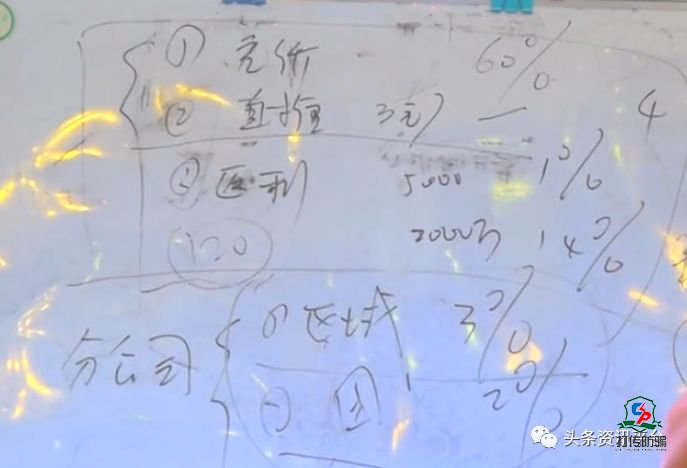 ① 充价 60%
② 直推 3元 — 4
③ 返利 5000 1%
120 2000万 14%
分公司 ① 区域 3%
② 团 2%
头条资讯
打传防骗